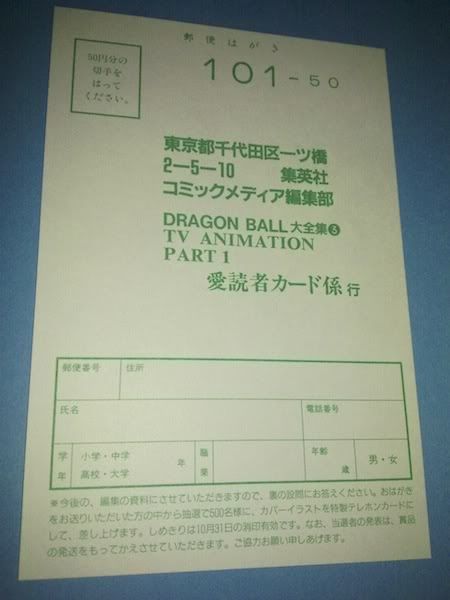 郵便はがき
50円分の
切手を
はって
ください。
101-50
東京都千代田区一ツ橋
2-5-10 集英社
コミックメディア編集部
DRAGON BALL 大全集❸
TV ANIMATION
PART 1
愛読者カード係 行
郵便番号 住所
氏名 電話番号
学年 小学・中学 高校・大学 年 職業 年齢 歳 男・女
※今後の、編集の資料にさせていただきますので、裏の設問にお答えください。おはがき
をお送りいただいた方の中から抽選で500名様に、カバーイラストを特製テレホンカードに
して、差し上げます。しめきりは10月31日の消印有効です。なお、当選者の発表は、賞品
の発送をもってかえさせていただきます。ご協力お願い申しあげます。